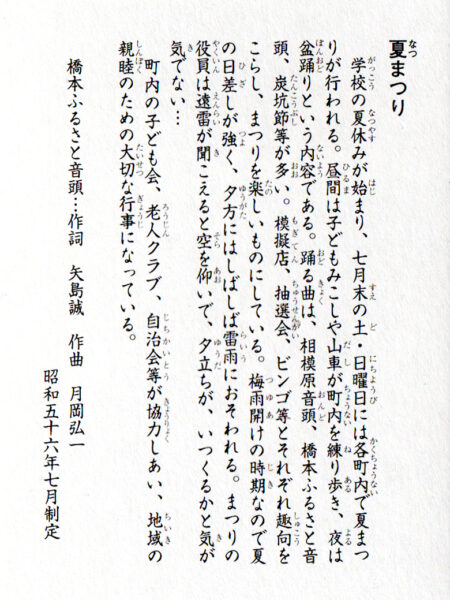 夏まつり
学校の夏休みが始まり、七月末の土・日曜日には各町内で夏まつ
りが行われる。昼間は子どもみこしや山車が町内を練り歩き、夜は
盆踊りという内容である。踊る曲は、相模原音頭、橋本ふるさと音
頭、炭坑節等が多い。模擬店、抽選会、ビンゴ等とそれぞれ趣向を
こらし、まつりを楽しいものにしている。梅雨開けの時期なので夏
の日差しが強く、夕方にはしばしば雷雨におそわれる。まつりの
役員は遠雷が聞こえると空を仰いで、夕立ちが、いつくるかと気が
気でない…
町内の子ども会、老人クラブ、自治会等が協力しあい、地域の
親睦のための大切な行事になっている。
橋本ふるさと音頭…作詞 矢島誠 作曲 月岡弘一
昭和五十六年七月制定